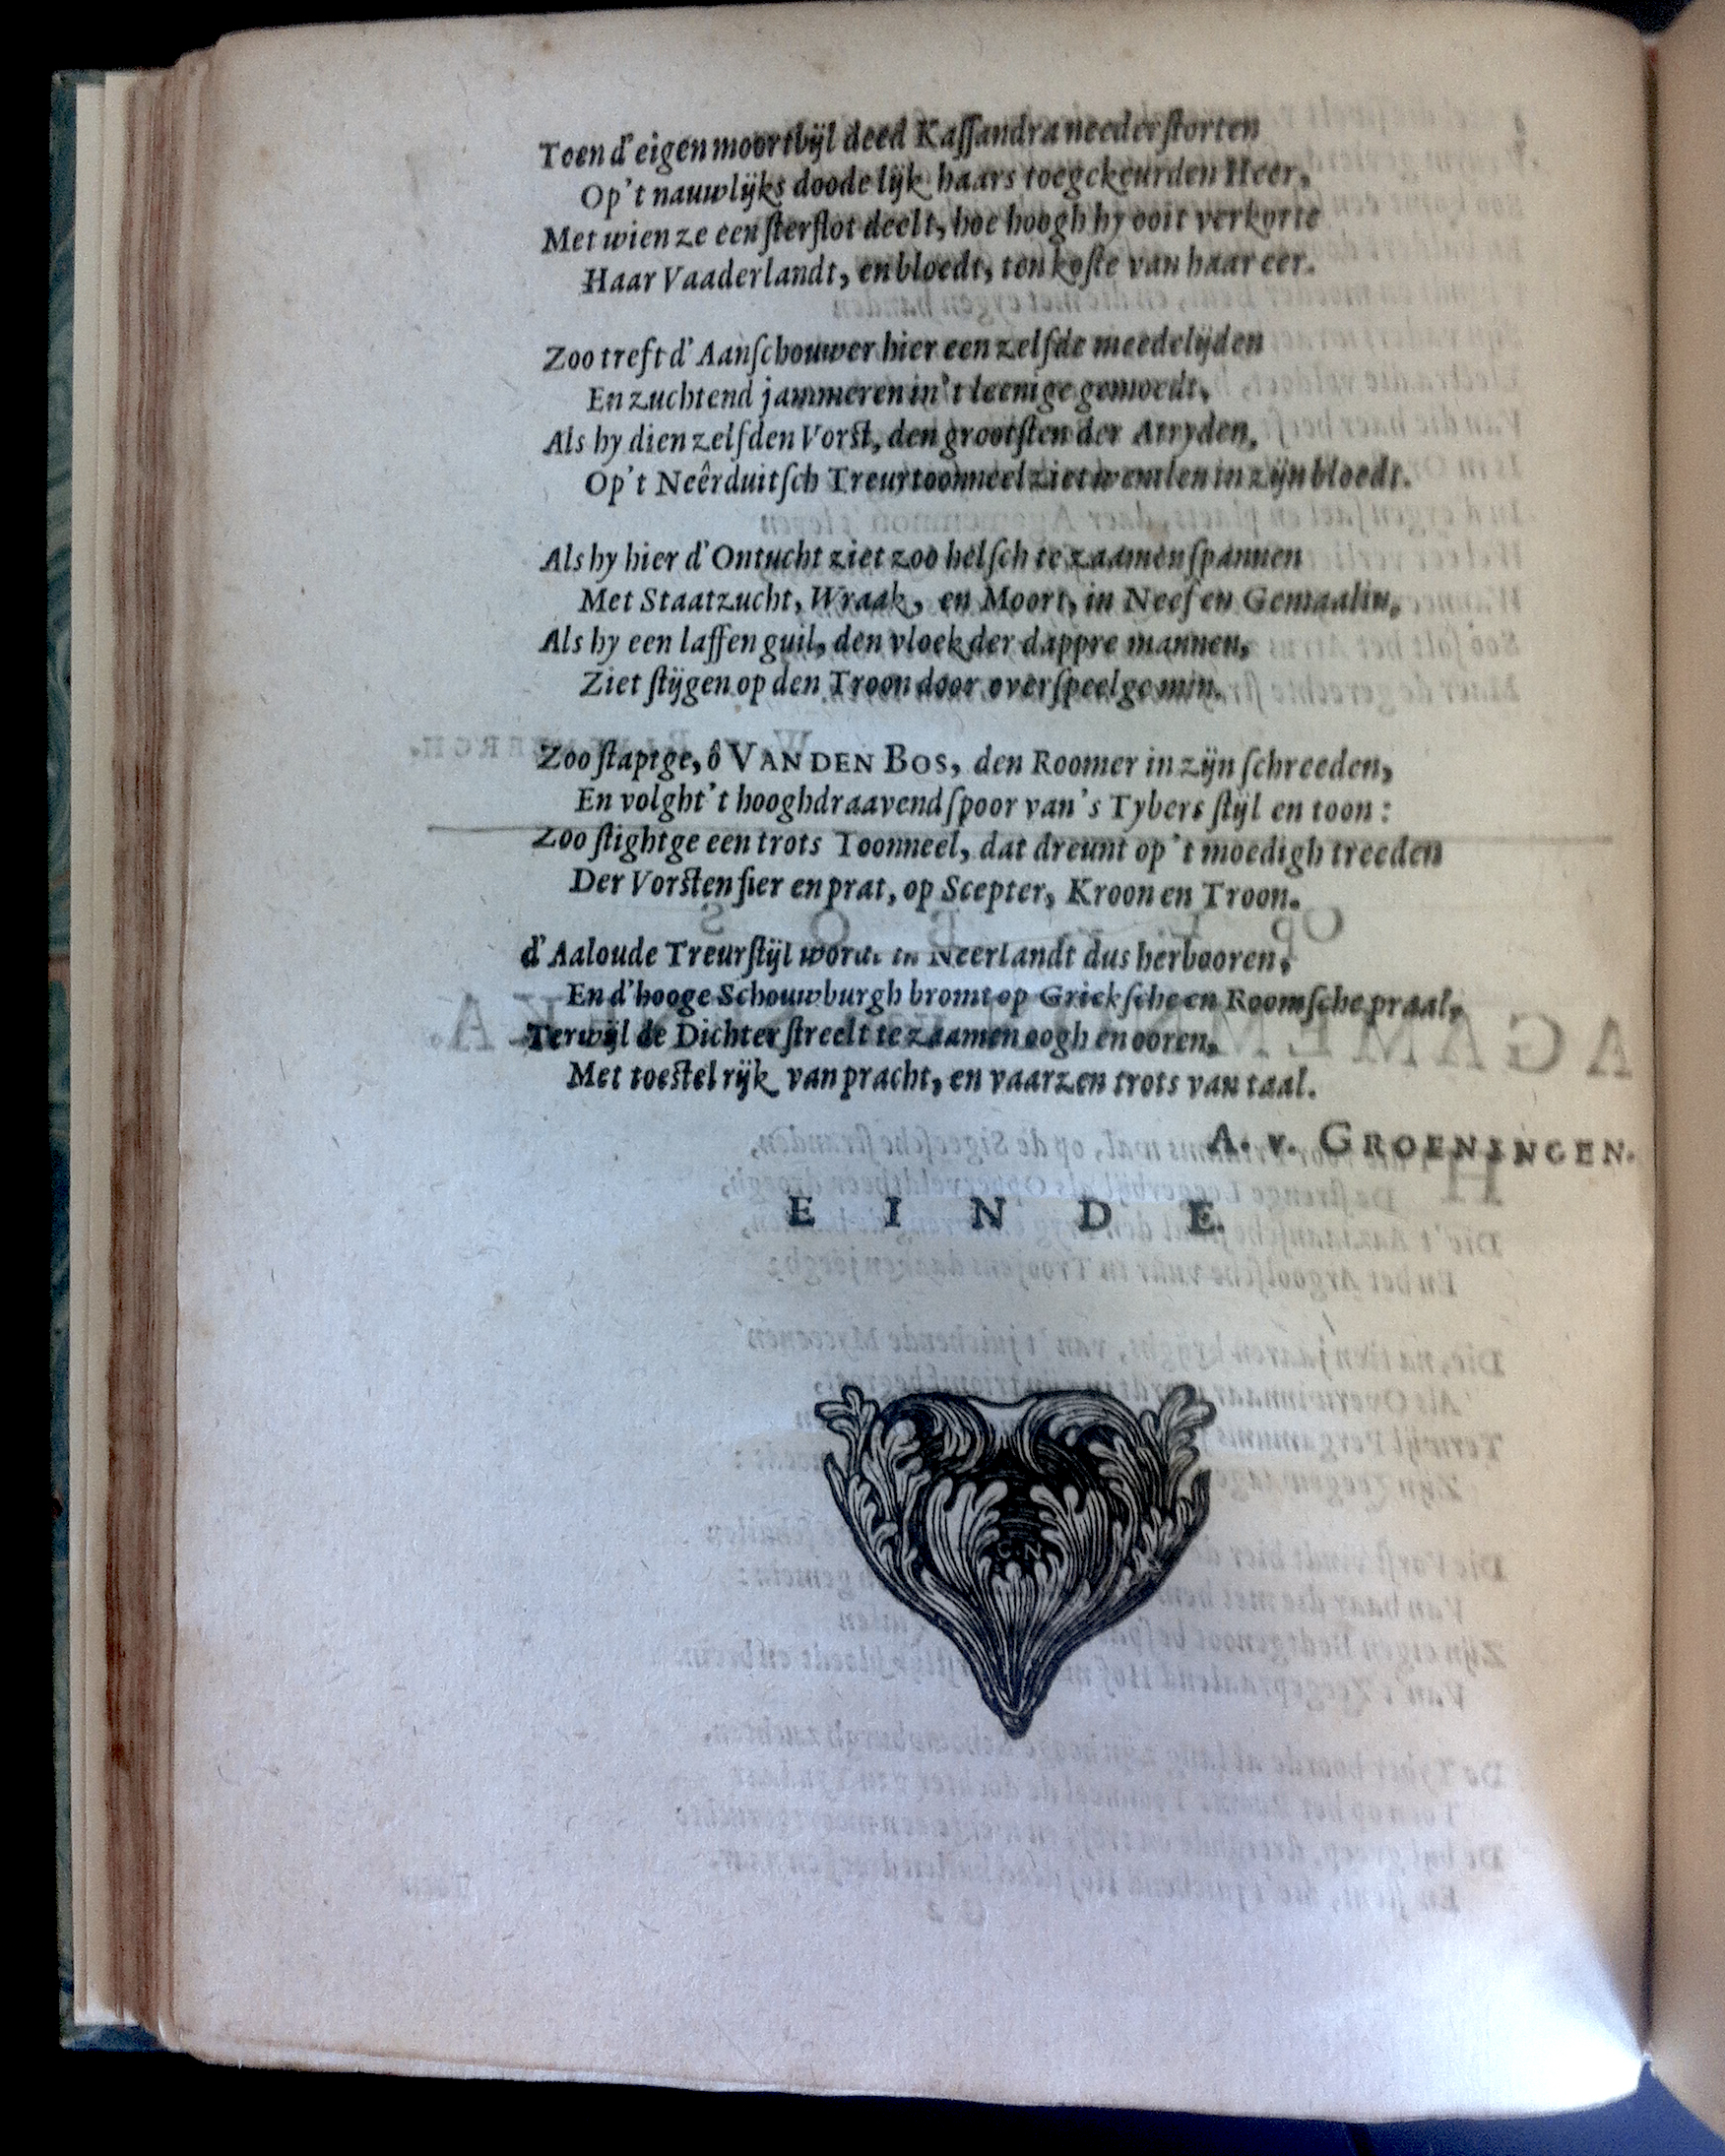 Toen d'eigen moortbijl deed Kaſſandra neederſtorten
Op't nauwlijks doodelijk haars toegekeurden Heer,
Met wien ze een ſterflot deelt, hoe hoogh hy ooit verkorte
Haar Vaaderlandt, en bloedt, ten koſte van haar eer.
Zoo treft d'Aanſchouwer hier een zelfde meedelijden
En zuchtend jammeren in't teenige gemoedt,
Als hy dien zelfden Vorst, den grootſten der Atryden,
Op't Neêrduitſch Treurtoonneel ziet wentlen in zijn bloedt.
Als hy hier d'Ontucht ziet zoo helſch te zaamen ſpannen
Met Staatzucht, Wraak, en Moort, in Neef en Gemaalin,
Als hy een laffen guil, den vloek der dappre mannen,
Ziet ſtijgen op den Troon door overſpeelge min.
Zoo ſtaptge, ô VAN DEN BOS, den Roomer in zijn ſchreeden,
En volght't hooghdraavend ſpoor van's Tybers ſtijl en toon:
Zoo ſtightge een trots Toonneel, dat dreunt op't moedigh treeden
Der Vorsten fier en prat, op Scepter, Kroon en Troon.
d'Aaloude Treurſtijl wordt in Neerlandt dus herbooren,
En d'hooge Schouwburgh bromt op Griekſche en Roomſche praal,
Terwijl de Dichter ſtreelt te zaamen oogh en ooren,
Met toestel rijk van pracht, en vaarzen trots van taal.
A. v. GROENINGEN.
EINDE.
C.N